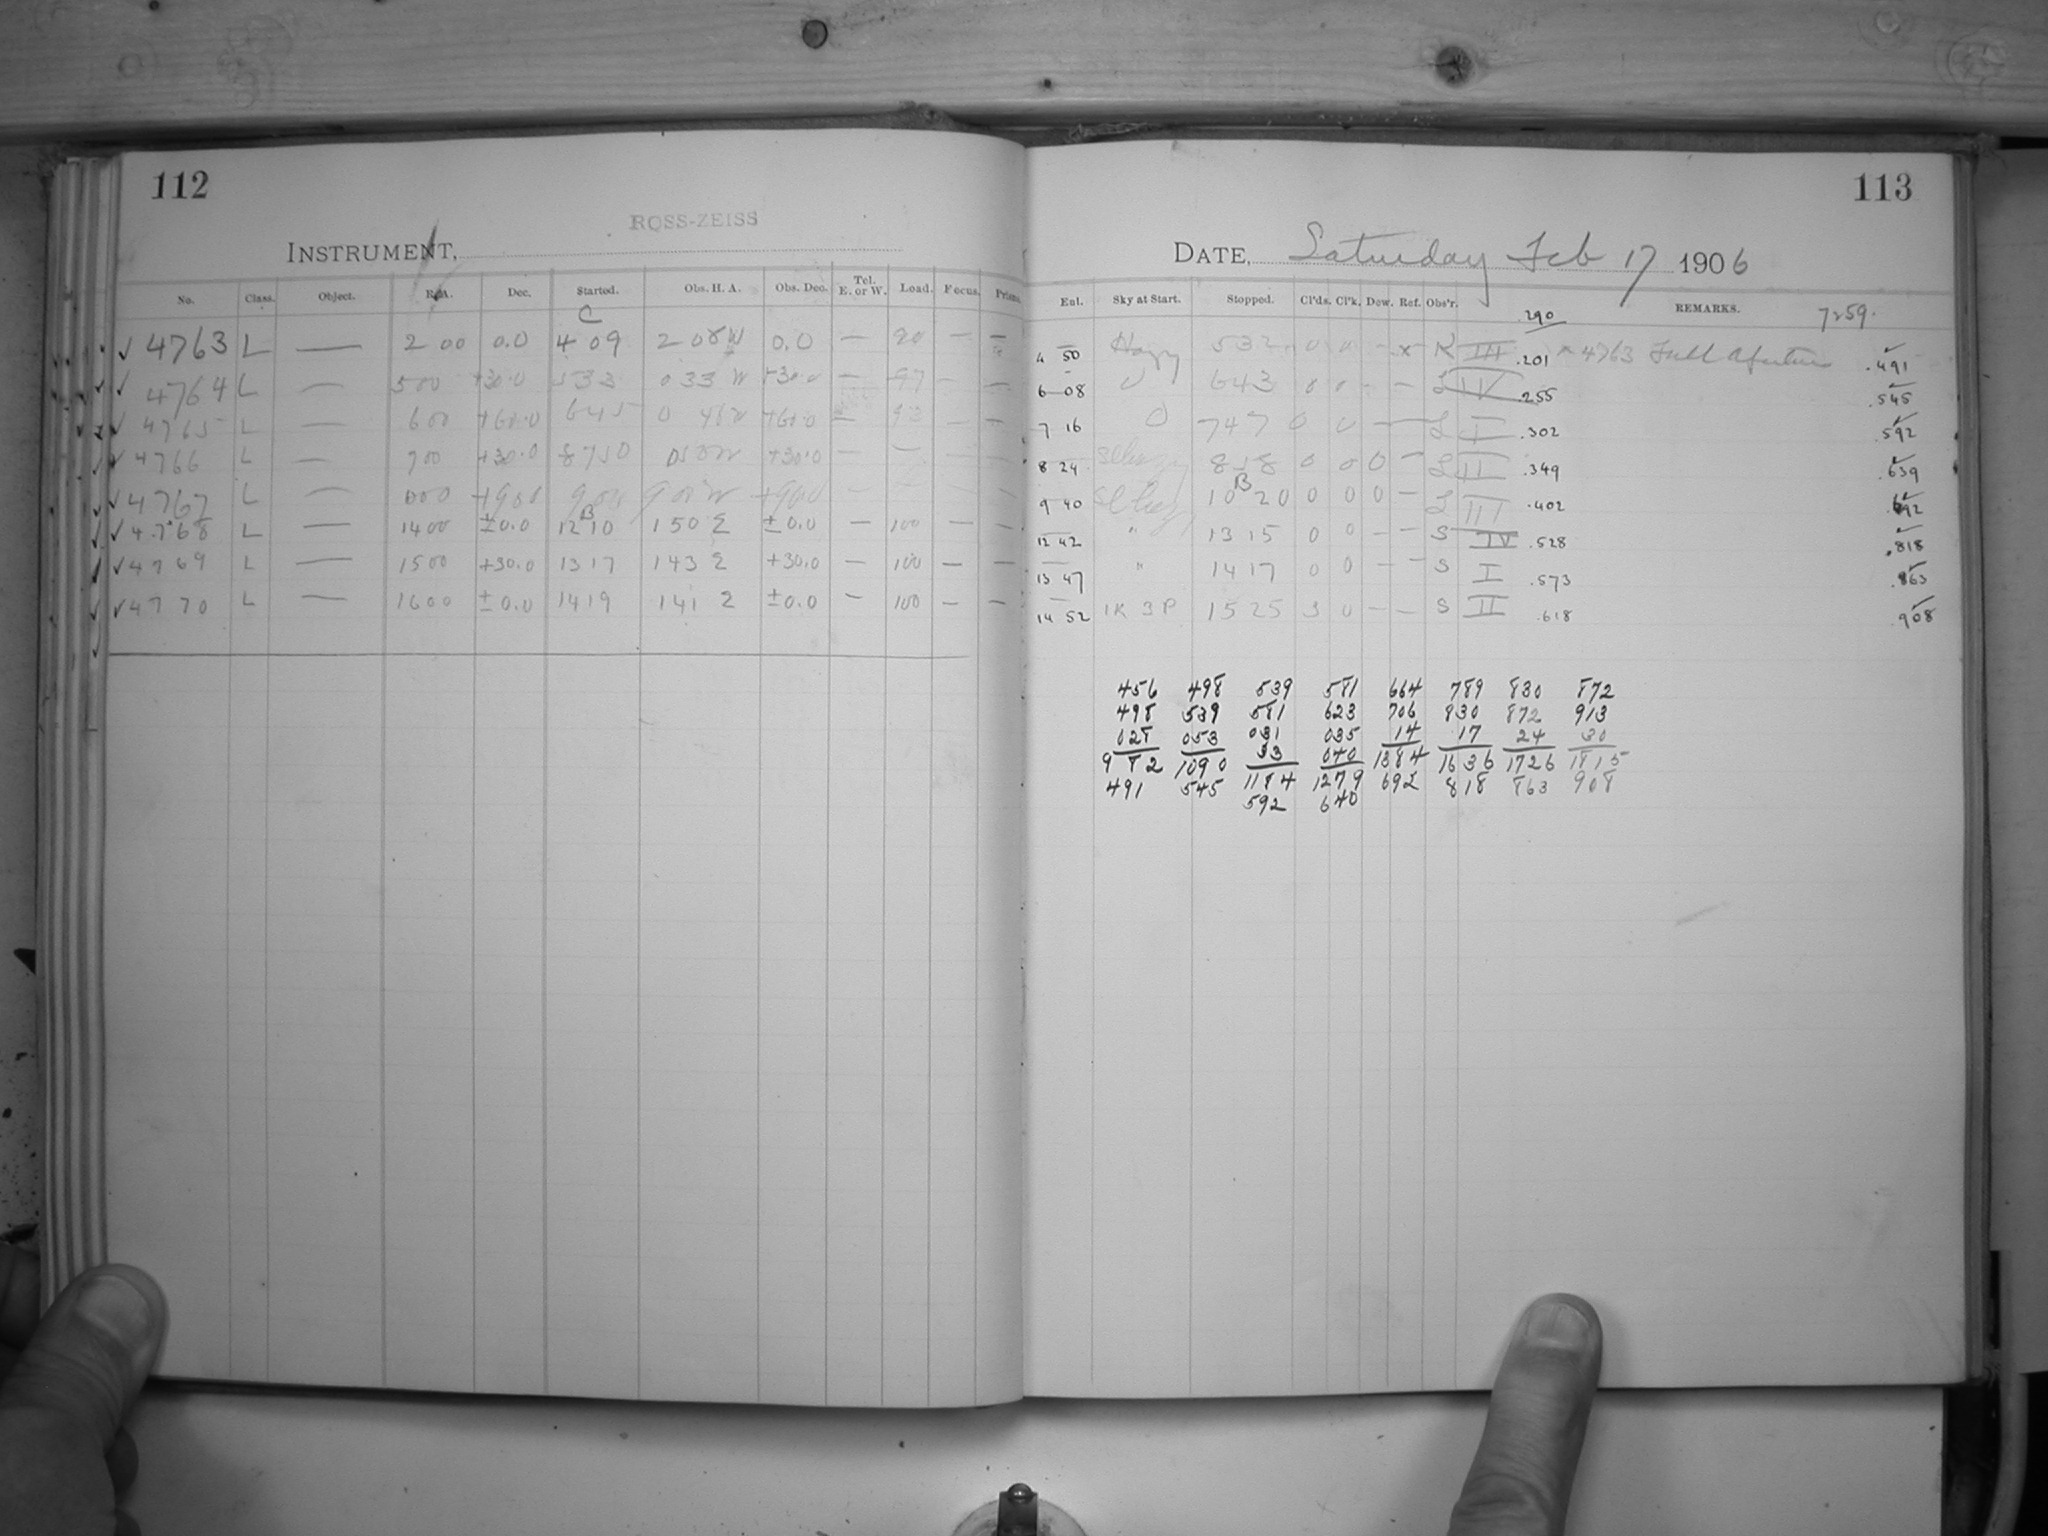 112
ROSS-ZEISS
INSTRUMENT,
No. Class. Object. R.A. Dec. Started. Obs. H. A. Obs. Dec. Tel. E. or W. Load. Focus. Prism.
C
✓ 4763 L — 2 00 0.0 4 09 2 08 W 0.0 — 90 — —
✓ 4764 L — 5 00 +30.0 5 33 0 33 W +30.0 — 97 — —
✓ 4765 L — 6 00 +60.0 6 45 0 46 W +60.0 — — —
✓ 4766 L — 7 00 +30.0 +30.0 — — —
✓ 4767 L —
B
✓ 4768 L — 14 00 ±0.0 12 10 1 50 E ±0.0 — 100 — —
✓ 4769 L — 15 00 +30.0 13 17 1 43 E +30.0 — 100 — —
✓ 4770 L — 16 00 ±0.0 14 19 1 41 E ±0.0 — 100 — —
113
DATE, Saturday Feb 17 1906
Ent. Sky at Start. Stopped. Cl'ds. Cl'k. Dew. Ref. Obs'r. REMARKS.
.290 7259.
4 50 Hazy 5 32 0 0 - x K III .201 x 4763 Full Aperture .491
6 08 0 6 43 0 0 - - L IV .255 .545
7 16 0 7 47 0 0 — L I .302 .592
8 24 8 58 0 0 0 - L II .349 .639
B
9 40 10 20 0 0 0 - L III .402 .692
12 42 " 13 15 0 0 - - S IV .528 .818
13 47 " 14 17 0 0 - - S I .573 .863
14 52 1K 3P 15 25 3 0 - - S II .618 .908
456 498 539 581 664 789 830 872
498 539 581 623 706 830 872 913
028 053 031 035 14 17 24 30
982 1090 33 040 1384 1636 1726 1815
491 545 1184 1279 692 818 863 908
592 640